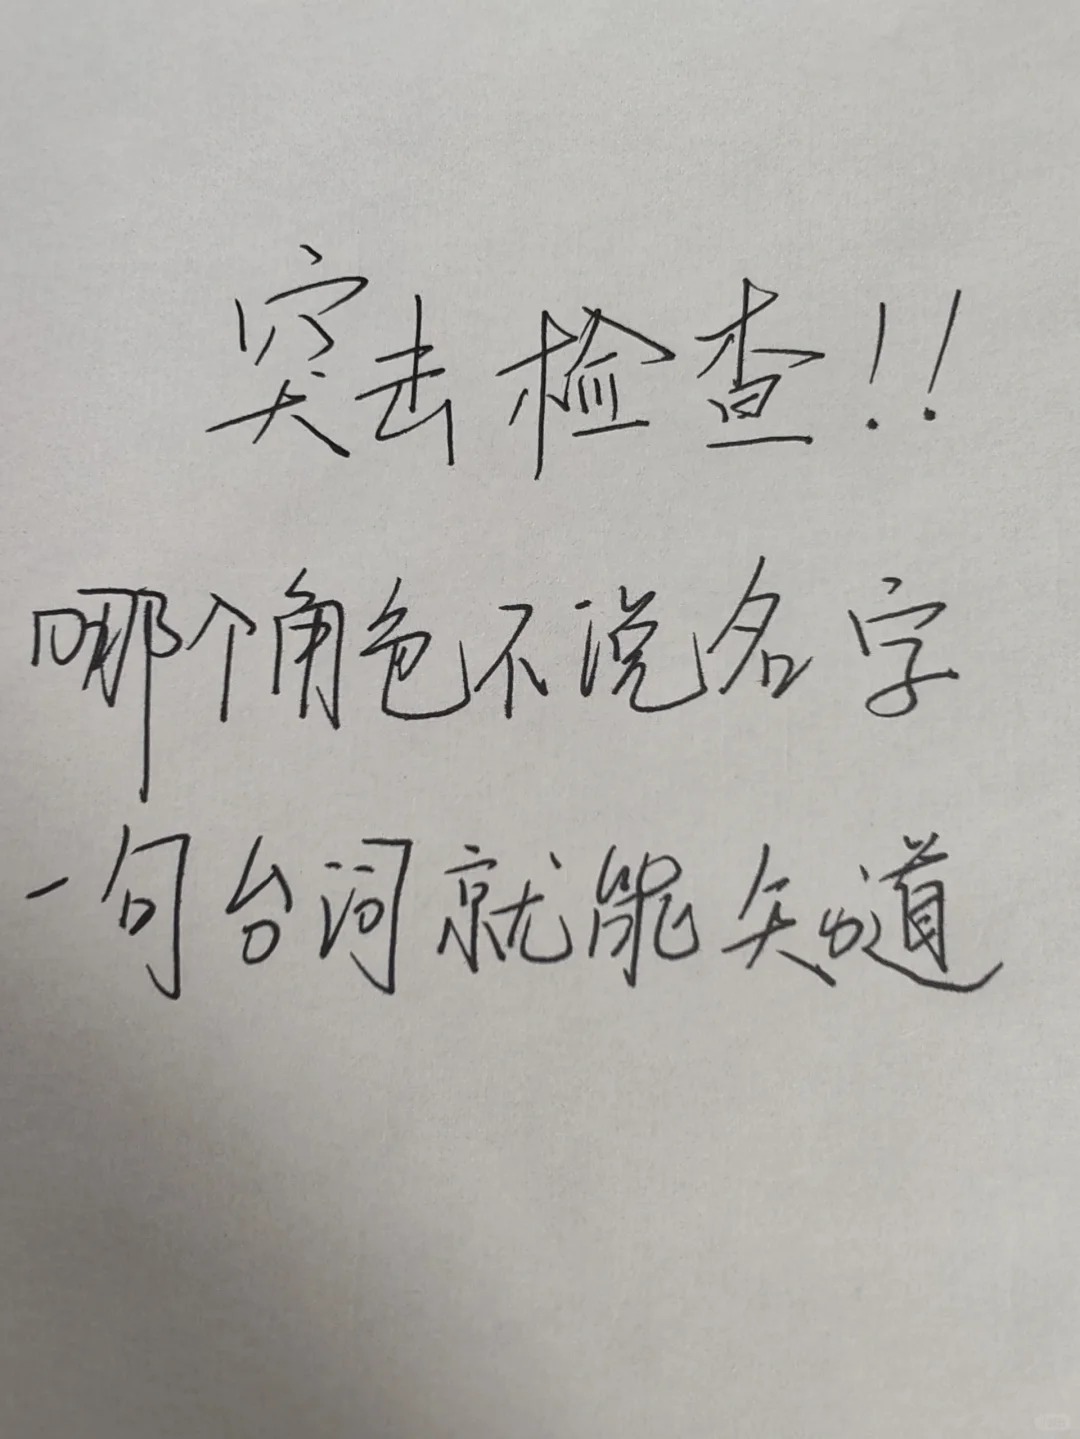 突击检查!!
哪个角色不说名字
一句台词就能知道